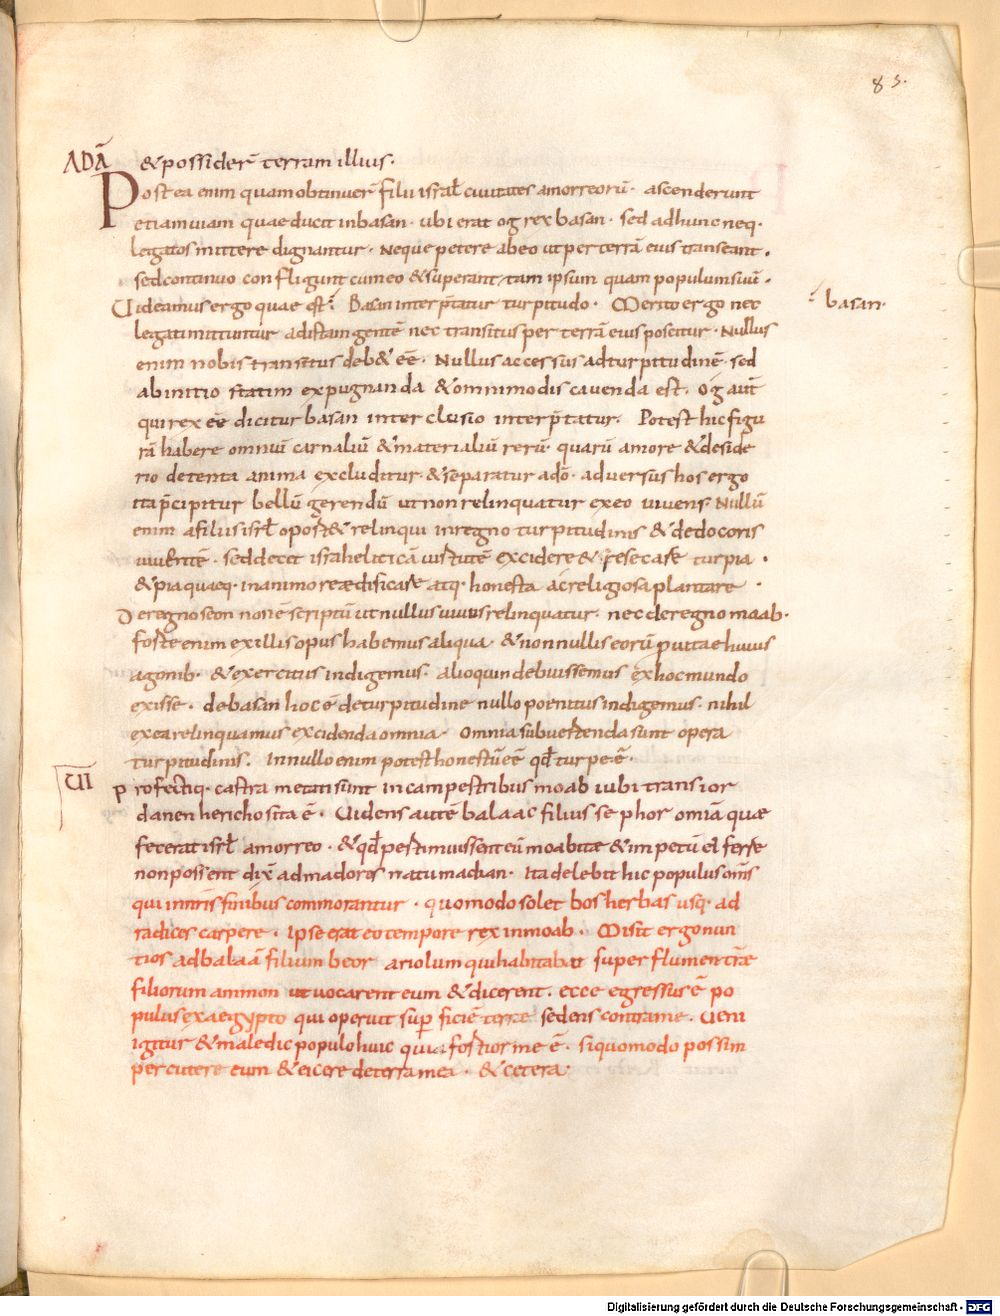 83.
ADĀ & possider̄ terram illius.
Postea enim quam obtinuer̄ filii israł civitates amorreorū. ascenderunt
etiam viam quae ducit in basan. ubi erat og rex basan. sed ad hunc neq.
legatos mittere dignantur. Neque petere ab eo ut per terrā eius transeant.
sed continuo confligunt cum eo & superant tam ipsum quam populum suū.
Uideamus ergo quae est. Basan interp̄tatur turpitudo. Merito ergo nec
basan.
legati mittuntur ad istam gentē nec transitus per terrā eius poscitur. Nullus
enim nobis transitus deb& ēē. Nullus accessus ad turpitudinē. sed
ab initio statim expugnanda & omnimodis cauenda est. Og aut̄
qui rex ēē dicitur basan interclusio interp̄tatur. Potest hic figu
rā habere omniū carnaliū & materialiū rerū. quarū amore & deside
rio detenta anima excluditur & separatur a dō. adversus hos ergo
ita p̄cipitur bellū gerendū ut non relinquatur ex eo uiuens. Nullū
enim a filiis isrł oport& relinqui in regno turpitudinis & dedocoris
uiuentē. sed decet israheliticā uirtutē excidere & resecare turpia.
& pia quaeq. in animo reaedificare atq. honesta ac religiosa plantare.
De regno seon non ē scriptū ut nullus uiuus relinquatur. nec de regno moab.
forte enim ex illis opus habemus aliqua & nonnullis eorū p uitae huius
agonib. & exercitus indigemus. alioquin debuissemus ex hoc mundo
exisse. de basan hoc ē de turpitudine nullo poenitus indigemus. nihil
ex ea relinquamus excidenda omnia. Omnia subuertenda sunt opera
turpitudinis. In nullo enim potest honestū ēē qd̄ turpe ē.
UI profectiq. castra metati sunt in campestribus moab iubi trans ior
danen hericho sita ē. Uidens autē balaac filius sephor omīa quae
fecerat isrł amorreo. & qd̄ pertimuissent eū moabitae & impetū ei ferre
non possent dix̄ ad maiores natu madian. Ita delebit hic populus om̄s
qui in n̄ris finibus commorantur. quomodo solet bos herbas usq. ad
radices carpere. Ipse erat eo tempore rex in moab. Misit ergo nun
tios ad balaā filium beor ariolum qui habitabat super flumen t̄rae
filiorum ammon ut vocarent eum & dicerent. ecce egressus ē po
pulus ex aegypto qui operuit sup ficiē terrae sedens contra me. Ueni
igitur & maledic populo huic quia fortior me ē. si quomodo possim
percutere eum & eicere de terra mea. & cetera.
Digitalisierung gefördert durch die Deutsche Forschungsgemeinschaft - DFG